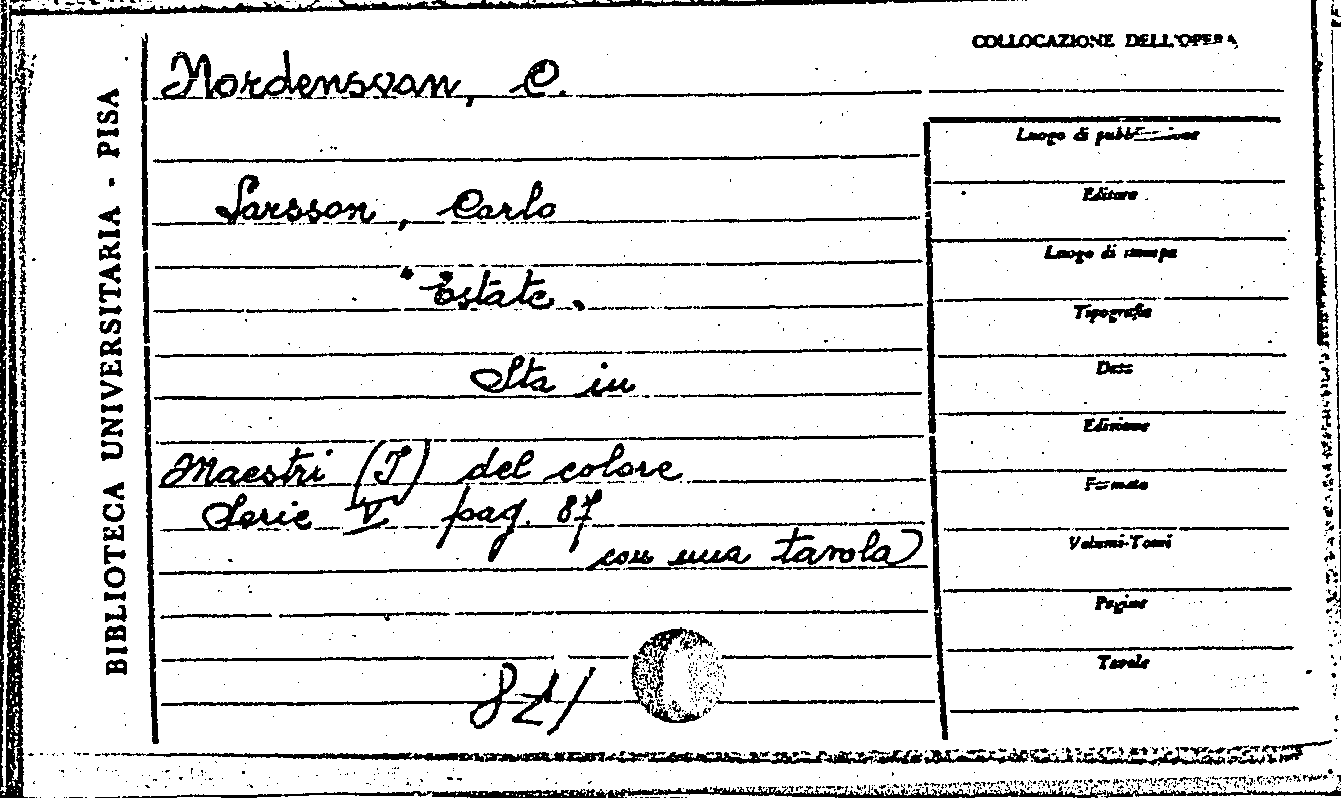 BIBLIOTECA UNIVERSITARIA - PISA
COLLOCAZIONE DELL'OPERA
Nordensvan, C.
Luogo di pubblicazione
Larsson, Carlo
Editore
Luogo di stampa
"Estate"
Tipografia
Sta in
Data
Edizione
Maestri (I) del colore
Formato
Serie V pag. 87
con una tavola
Volumi-Tomi
Pagine
Tavole